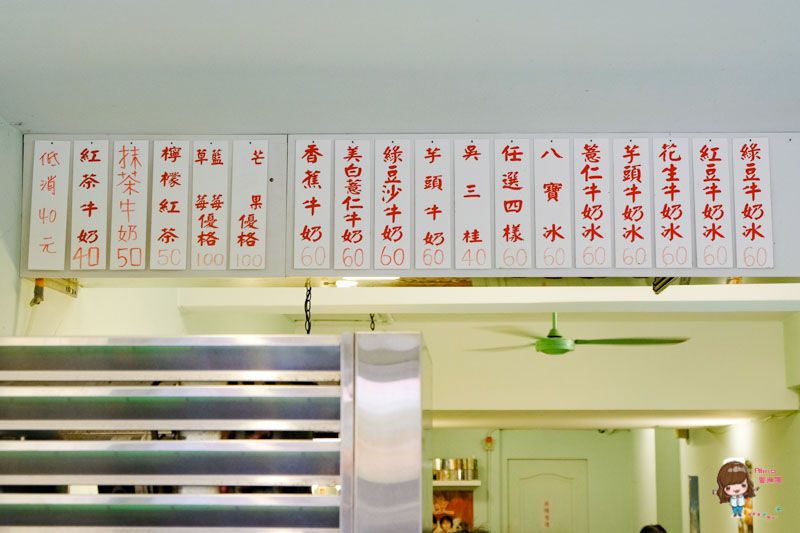 綠豆牛奶冰 60
紅豆牛奶冰 60
花生牛奶冰 60
芋頭牛奶冰 60
薏仁牛奶冰 60
八寶冰 60
任選四樣 60
吳三桂 40
芋頭牛奶 60
綠豆沙牛奶 60
美白薏仁牛奶 60
香蕉牛奶 60
芒果優格 100
藍莓優格
草莓 100
檸檬紅茶 50
抹茶牛奶 50
紅茶牛奶 40
低消40元